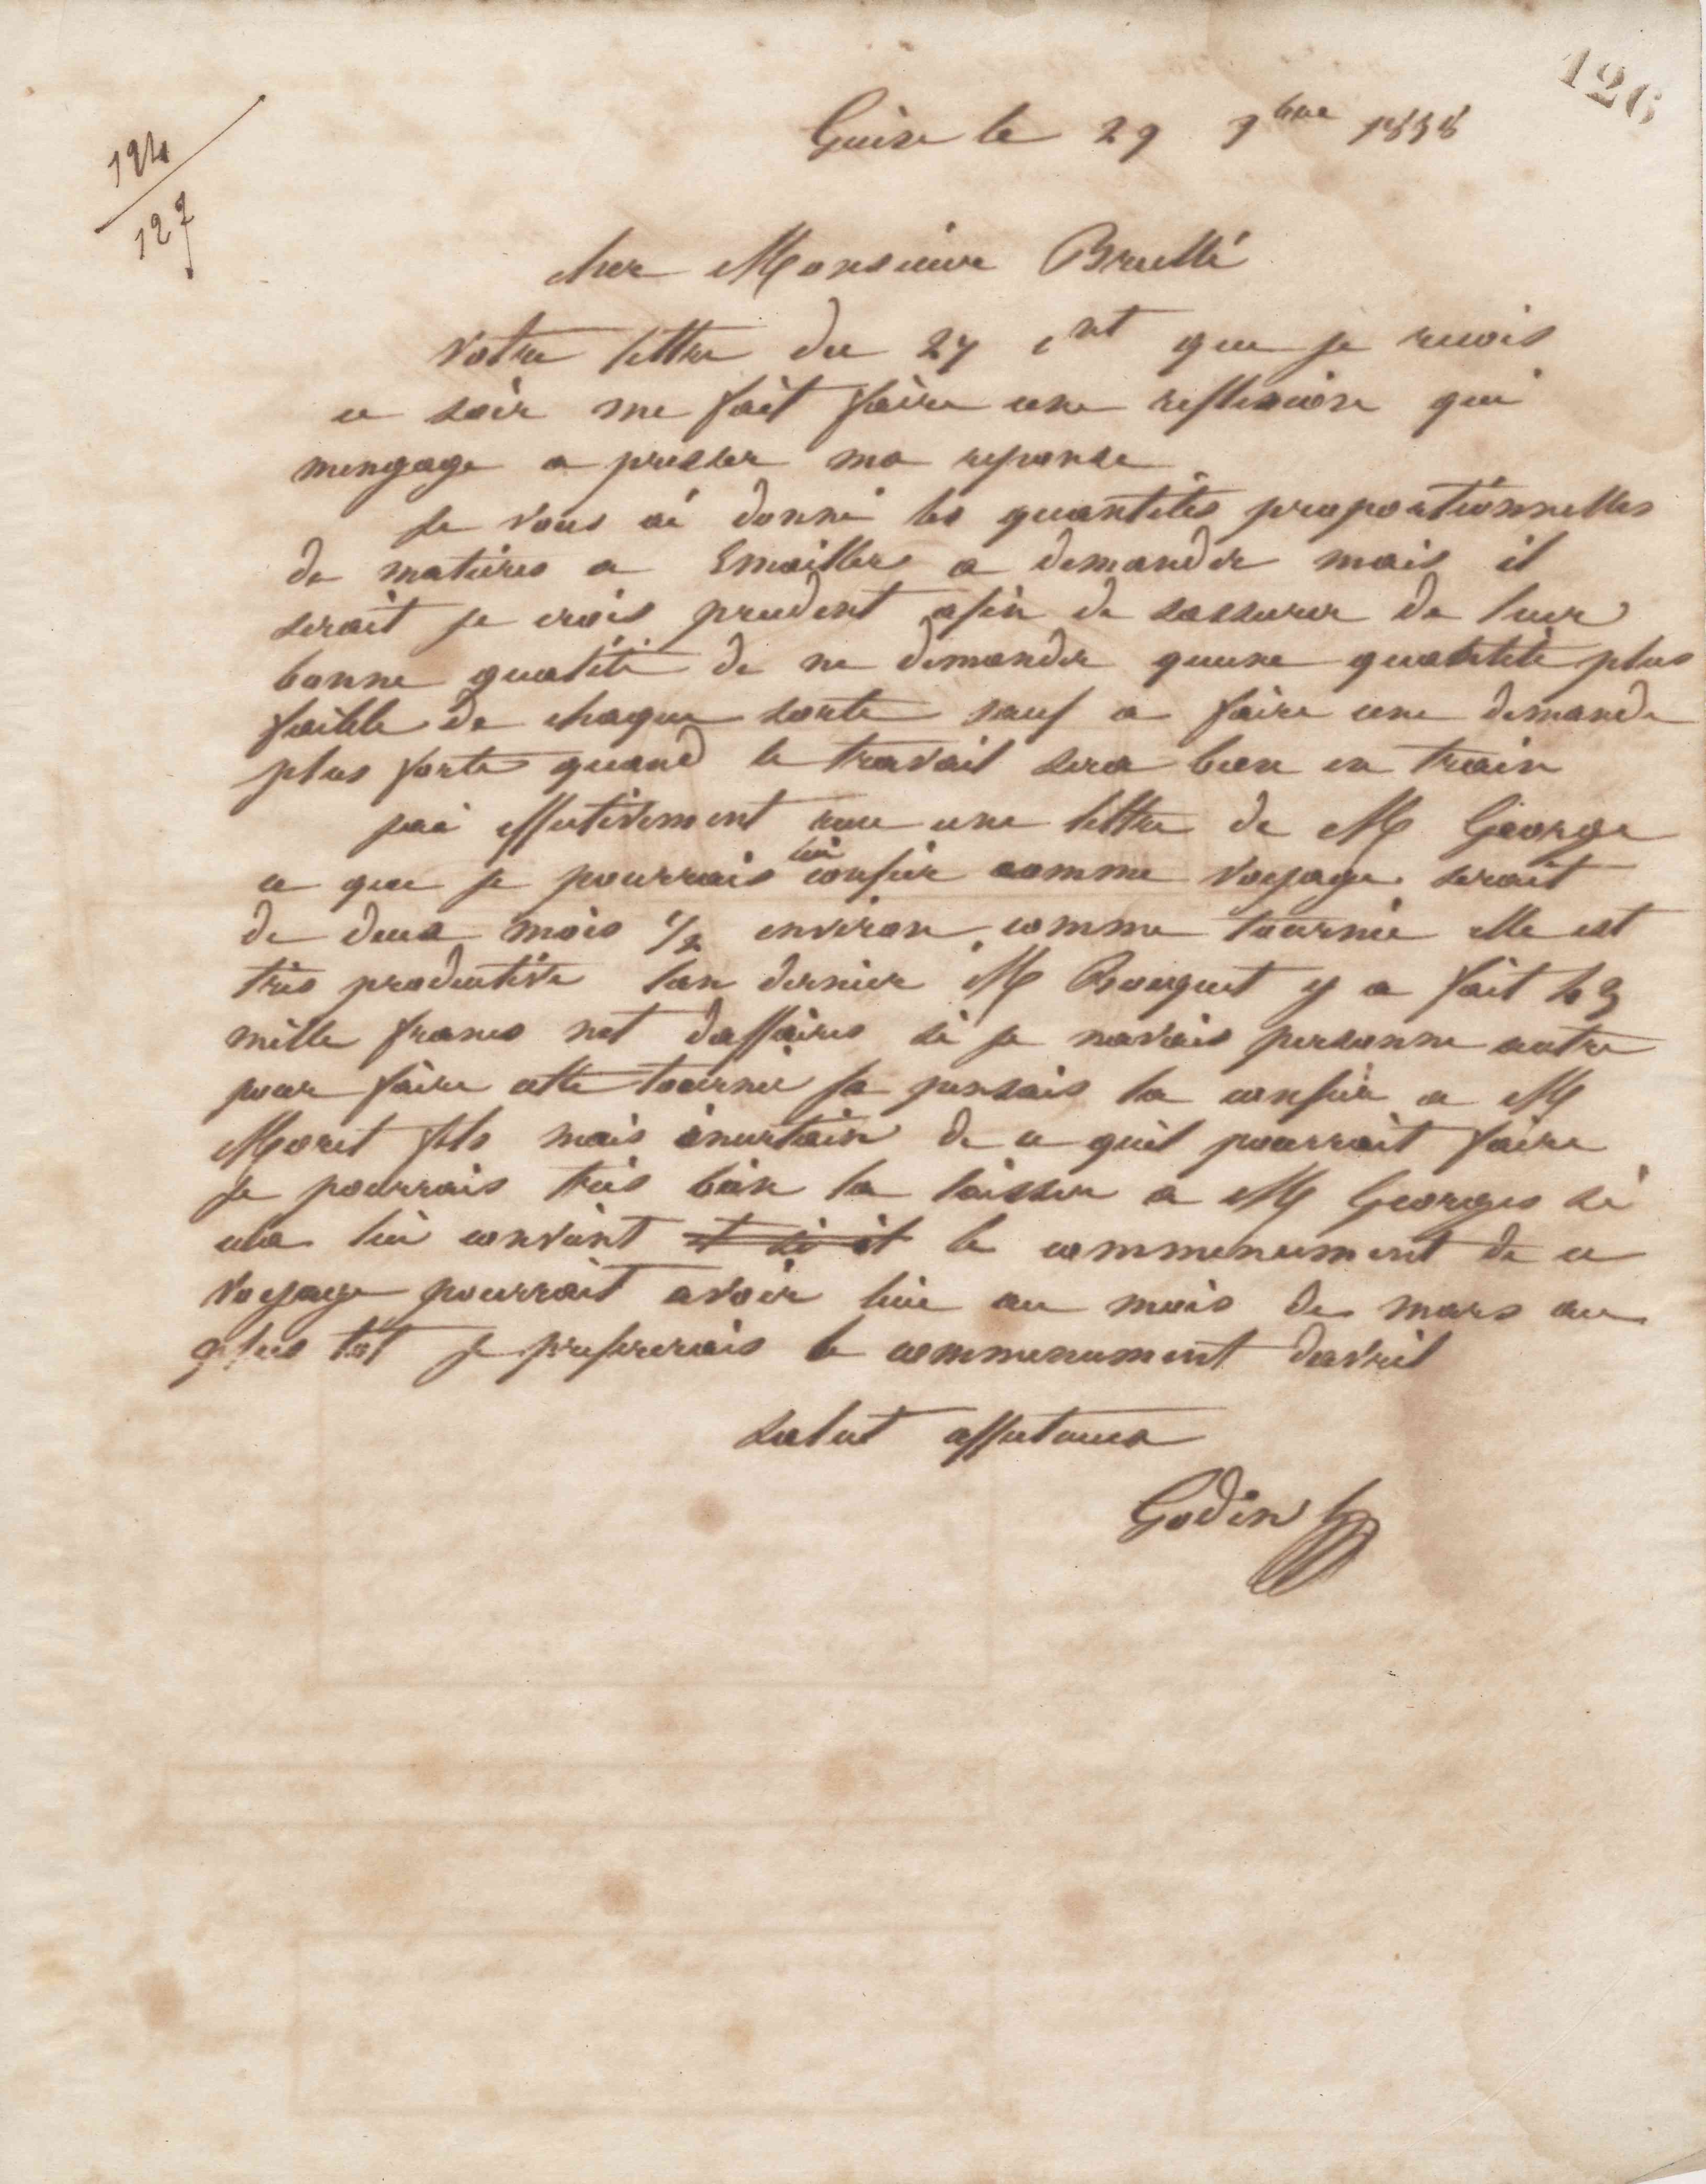 126
124
127
Guise le 29 9bre 1858
cher Monsieur Brullé
votre lettre du 27 cnt que je recois
ce soir me fait faire une reflexion qui
mengage a presser ma reponse
Je vous ai donné les quantités proportionnelles
de matieres a Emailler a demander mais il
serait je crois prudent afin de sassurer de leur
bonne qualité de ne demander quune quantité plus
faible de chaque sorte sauf a faire une demande
plus forte quand le travail sera bien en train
jai effectivement recu une lettre de M George
ce que je pourrais lui confier comme voyage serait
de deux mois 1/2 environ comme tournée elle est
très productive lan dernier M Bourguet y a fait 43
mille francs net daffaires si je navais personne autre
pour faire cette tournée je pensais la confier a M
Moret fils mais incertain de ce quil pourrait faire
je pourrais très bien la laisser a M Georges si
cela lui convient et si it le commencement de ce
voyage pourrait avoir lieu au mois de mars au
plus tot je prefererais le commencement davril
salut affectueux
Godin